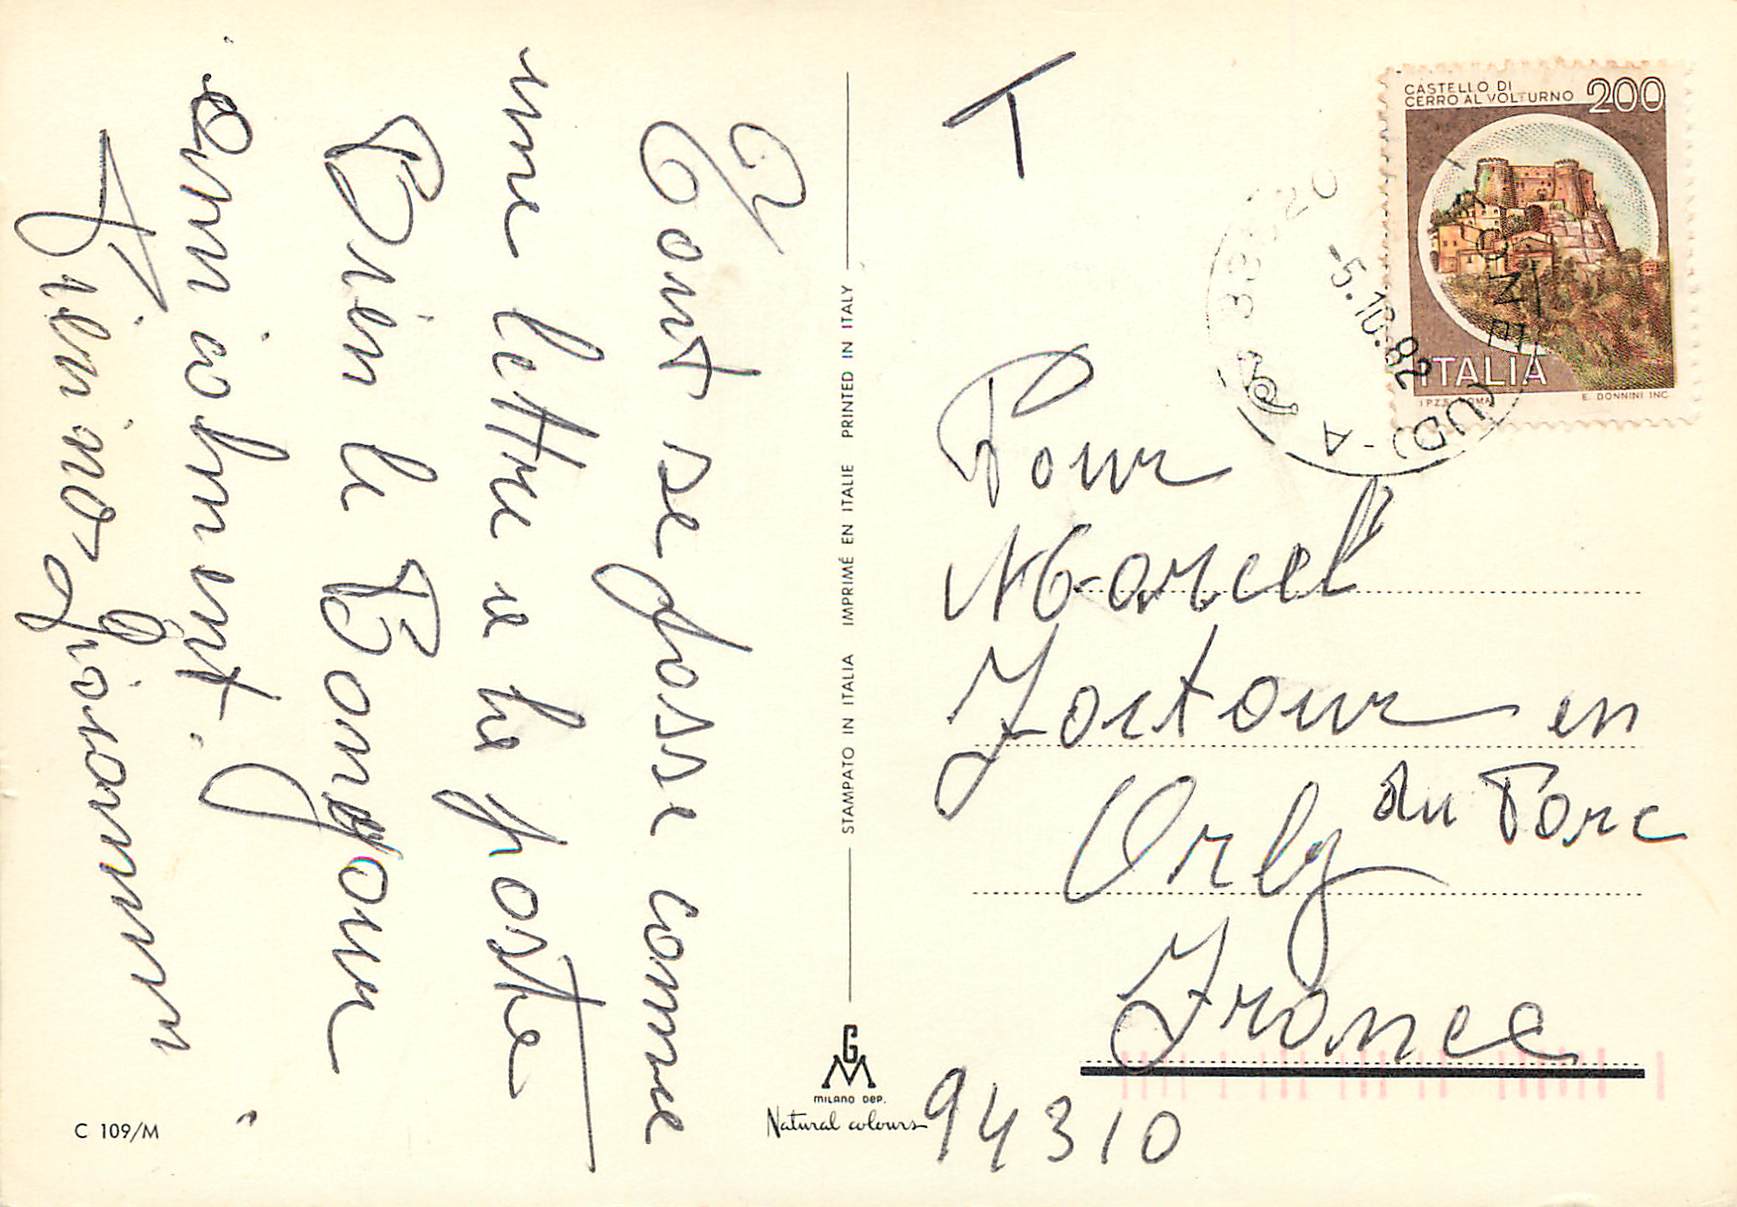 Tout se passe comme
une lettre a la poste
Bien le Bonjour
Amicalment.
T
Pour
Marcel
en
Orly du Parc
France
94310
CASTELLO DI
CERRO AL VOLTURNO
200
ITALIA
I.P.Z.S. ROMA
E. DONNINI INC.
-5.10.82
(UD) -A
STAMPATO IN ITALIA IMPRIMÉ EN ITALIE PRINTED IN ITALY
GM
MILANO DEP.
Natural colours
C 109/M